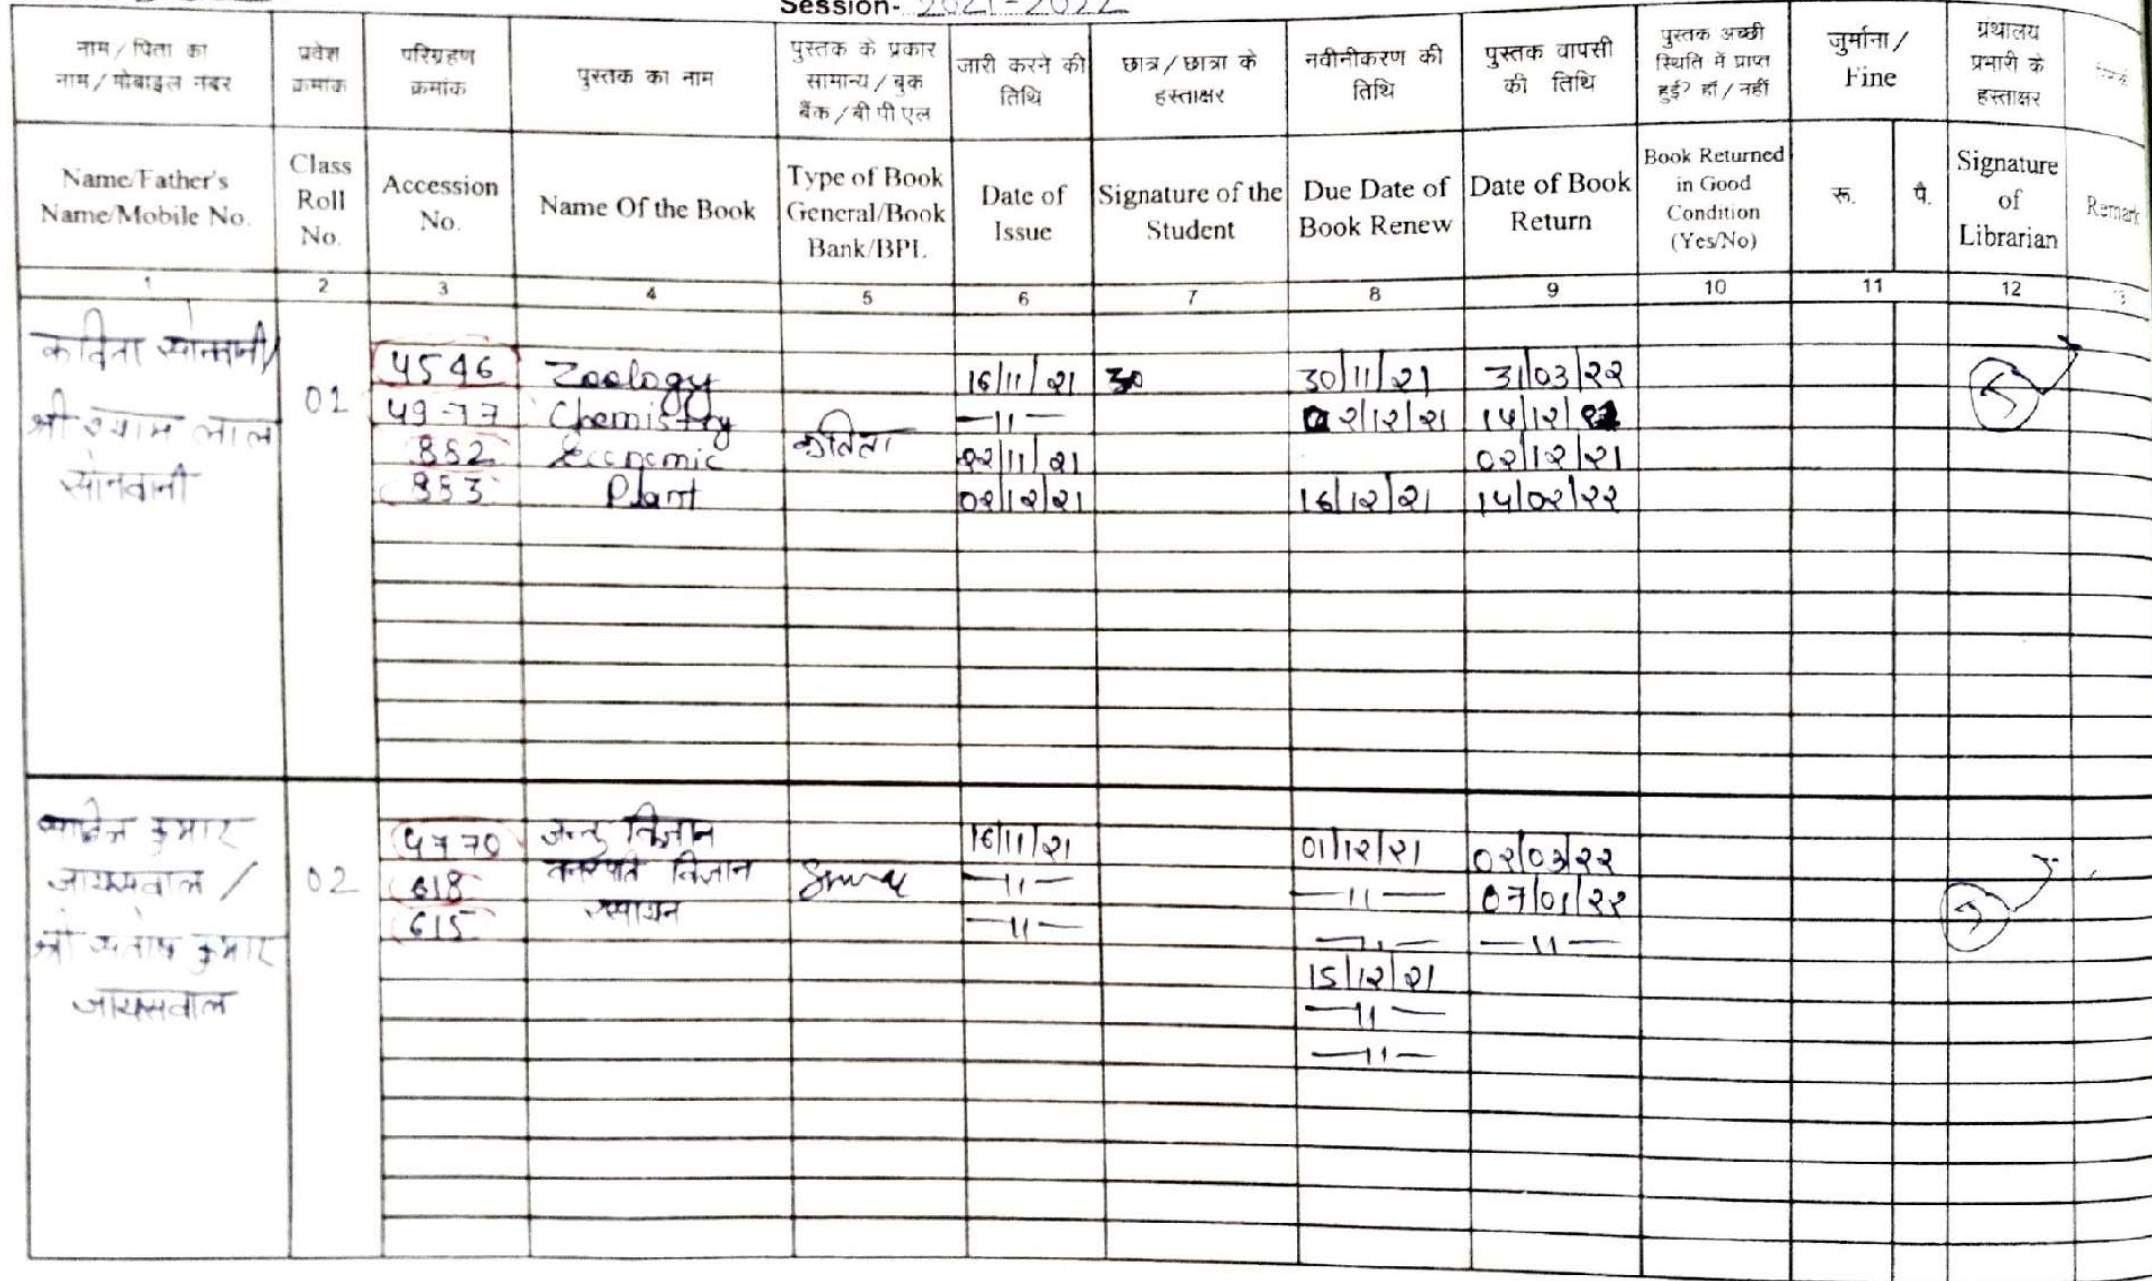 Session- 2021-2022
नाम/पिता का नाम/मोबाइल नंबर
प्रवेश क्रमांक
परिग्रहण क्रमांक
पुस्तक का नाम
पुस्तक के प्रकार सामान्य/बुक बैंक/बी पी एल
जारी करने की तिथि
छात्र/छात्रा के हस्ताक्षर
नवीनीकरण की तिथि
पुस्तक वापसी की तिथि
पुस्तक अच्छी स्थिति में प्राप्त हुई? हाँ/नहीं
जुर्माना/ Fine
ग्रंथालय प्रभारी के हस्ताक्षर
Name/Father's Name/Mobile No.
Class Roll No.
Accession No.
Name Of the Book
Type of Book General/Book Bank/BPL
Date of Issue
Signature of the Student
Due Date of Book Renew
Date of Book Return
Book Returned in Good Condition (Yes/No)
रू.
पै.
Signature of Librarian
Remark
1 2 3 4 5 6 7 8 9 10 11 12 13
कविता सोनवानी/
श्री श्याम लाल
सोनवानी
01
4546 Zoology 16/11/21 30 30/11/21 31/03/22
4977 Chemistry —11— 02/12/21 14/12/21
852 Economic कविता 22/11/21 02/12/21
853 Plant 02/12/21 16/12/21 14/02/22
कुमार
जायसवाल /
श्री संतोष कुमार
जायसवाल
02
4770 जन्तु विज्ञान 16/11/21 01/12/21 02/03/22
618 वनस्पति विज्ञान —11— —11— 07/01/22
615 रसायन —11— —11— —11—
15/12/21
—11—
—11—